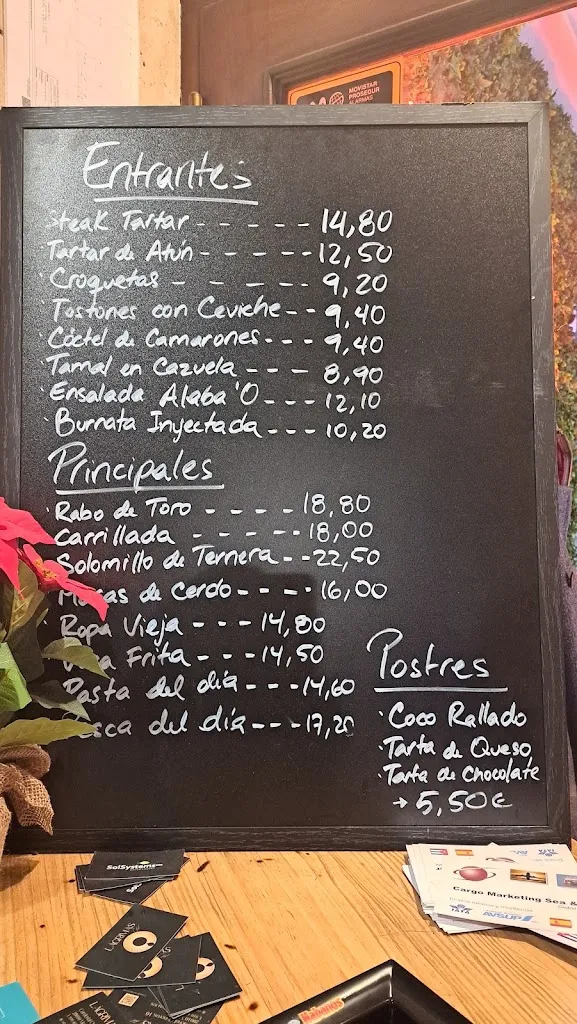 MOVISTAR
PROSEGUR
ALARMAS
Entrantes
Steak Tartar - - - - - 14,80
Tartar de Atún - - - - - 12,50
Croquetas - - - - 9,20
Tostones con Ceviche - - 9,40
Cóctel de Camarones - - - 9,40
Tamal en Cazuela - - - 8,90
Ensalada Alaba'O - - - 12,10
Burrata Inyectada - - - 10,20
Principales
Rabo de Toro - - - - 18,80
Carrillada - - - - - 18,00
Solomillo de Ternera - - 22,50
de Cerdo - - - - 16,00
Ropa Vieja - - - 14,80
Frita - - - 14,50
Pasta del día - - - 14,60
del día - - - 17,20
Postres
Coco Rallado
Tarta de Queso
Tarta de Chocolate
→ 5,50€
SolSystems
Cargo Marketing Sea &
IATA
AVSUP
Habanos